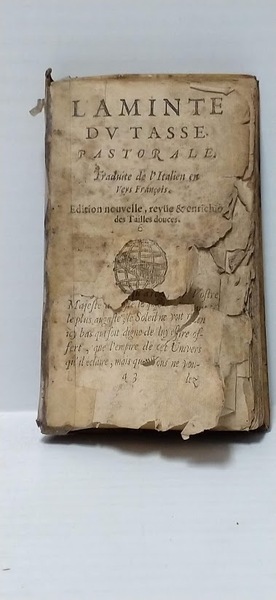 LAMINTE
DV TASSE.
PASTORALE.
Traduite de l'Italien en
Vers François.
Edition nouvelle, reuüe & enrichie
des Tailles douces.
Majesté
le plus auguste
icy bas qui soit digne de luy estre of-
fert, que l'empire de cet Univers
qu'il éclaire, mais
A 3